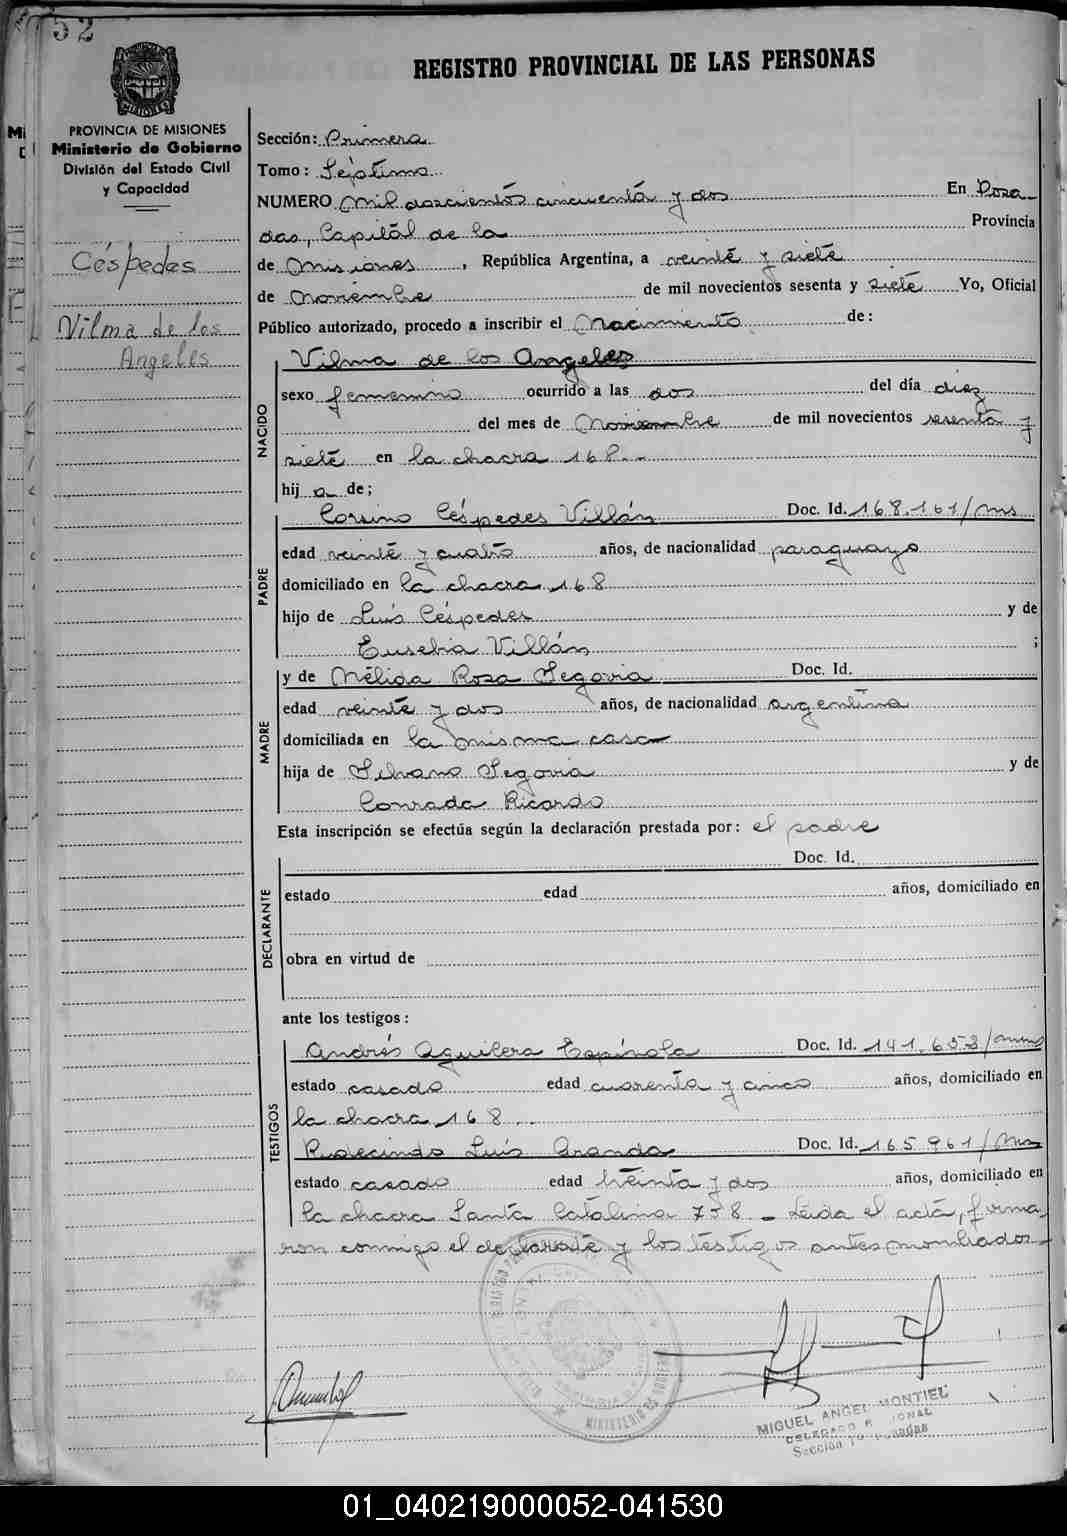 52
REGISTRO PROVINCIAL DE LAS PERSONAS
PROVINCIA DE MISIONES
Ministerio de Gobierno
División del Estado Civil
y Capacidad
Céspedes
Vilma de los
Angeles
Sección: Primera
Tomo: Séptimo
NUMERO Mil doscientos cincuenta y dos En Posa-
das, Capital de la Provincia
de Misiones, República Argentina, a veinte y siete
de Noviembre de mil novecientos sesenta y siete Yo, Oficial
Público autorizado, procedo a inscribir el Nacimiento de:
NACIDO
Vilma de los Angeles
sexo femenino ocurrido a las dos del día diez
del mes de Noviembre de mil novecientos sesenta y
siete en la chacra 168.-
hij a de;
PADRE
Corsino Céspedes Villán Doc. Id. 168.161/mns
edad veinte y cuatro años, de nacionalidad paraguayo
domiciliado en la chacra 168
hijo de Luis Céspedes y de
Eusebia Villán ;
MADRE
y de Mélida Rosa Segovia Doc. Id.
edad veinte y dos años, de nacionalidad argentina
domiciliada en la misma casa
hija de Silvano Segovia y de
Conrada Ricardo
Esta inscripción se efectúa según la declaración prestada por: el padre
DECLARANTE
Doc. Id.
estado edad años, domiciliado en
obra en virtud de
ante los testigos:
TESTIGOS
Andrés Aguilera Espínola Doc. Id. 141.653/mns
estado casado edad cuarenta y cinco años, domiciliado en
la chacra 168.-
Rudecindo Luis Aranda Doc. Id. 165.961/mns
estado casado edad treinta y dos años, domiciliado en
la chacra Santa Catalina 758 - Leída el acta, firma-
ron conmigo el declarante y los testigos antes nombrados-
MIGUEL ANGEL MONTIEL
DELEGADO
Sección 1ª Posadas
01_040219000052-041530